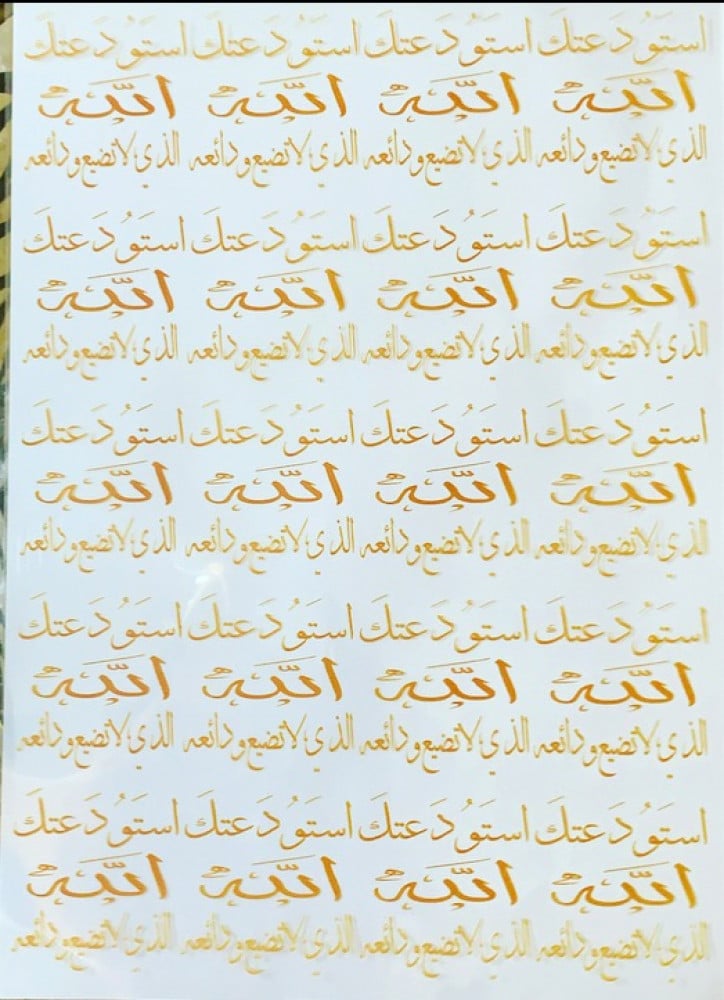 استَوُدَعتكَ استَوُدَعتكَ استَوُدَعتكَ استَوُدَعتكَ
اللّه اللّه اللّه اللّه
الذي لا تضيع ودائعه الذي لا تضيع ودائعه الذي لا تضيع ودائعه الذي لا تضيع ودائعه
استَوُدَعتكَ استَوُدَعتكَ استَوُدَعتكَ استَوُدَعتكَ
اللّه اللّه اللّه اللّه
الذي لا تضيع ودائعه الذي لا تضيع ودائعه الذي لا تضيع ودائعه الذي لا تضيع ودائعه
استَوُدَعتكَ استَوُدَعتكَ استَوُدَعتكَ استَوُدَعتكَ
اللّه اللّه اللّه اللّه
الذي لا تضيع ودائعه الذي لا تضيع ودائعه الذي لا تضيع ودائعه الذي لا تضيع ودائعه
استَوُدَعتكَ استَوُدَعتكَ استَوُدَعتكَ استَوُدَعتكَ
اللّه اللّه اللّه اللّه
الذي لا تضيع ودائعه الذي لا تضيع ودائعه الذي لا تضيع ودائعه الذي لا تضيع ودائعه
استَوُدَعتكَ استَوُدَعتكَ استَوُدَعتكَ استَوُدَعتكَ
اللّه اللّه اللّه اللّه
الذي لا تضيع ودائعه الذي لا تضيع ودائعه الذي لا تضيع ودائعه الذي لا تضيع ودائعه